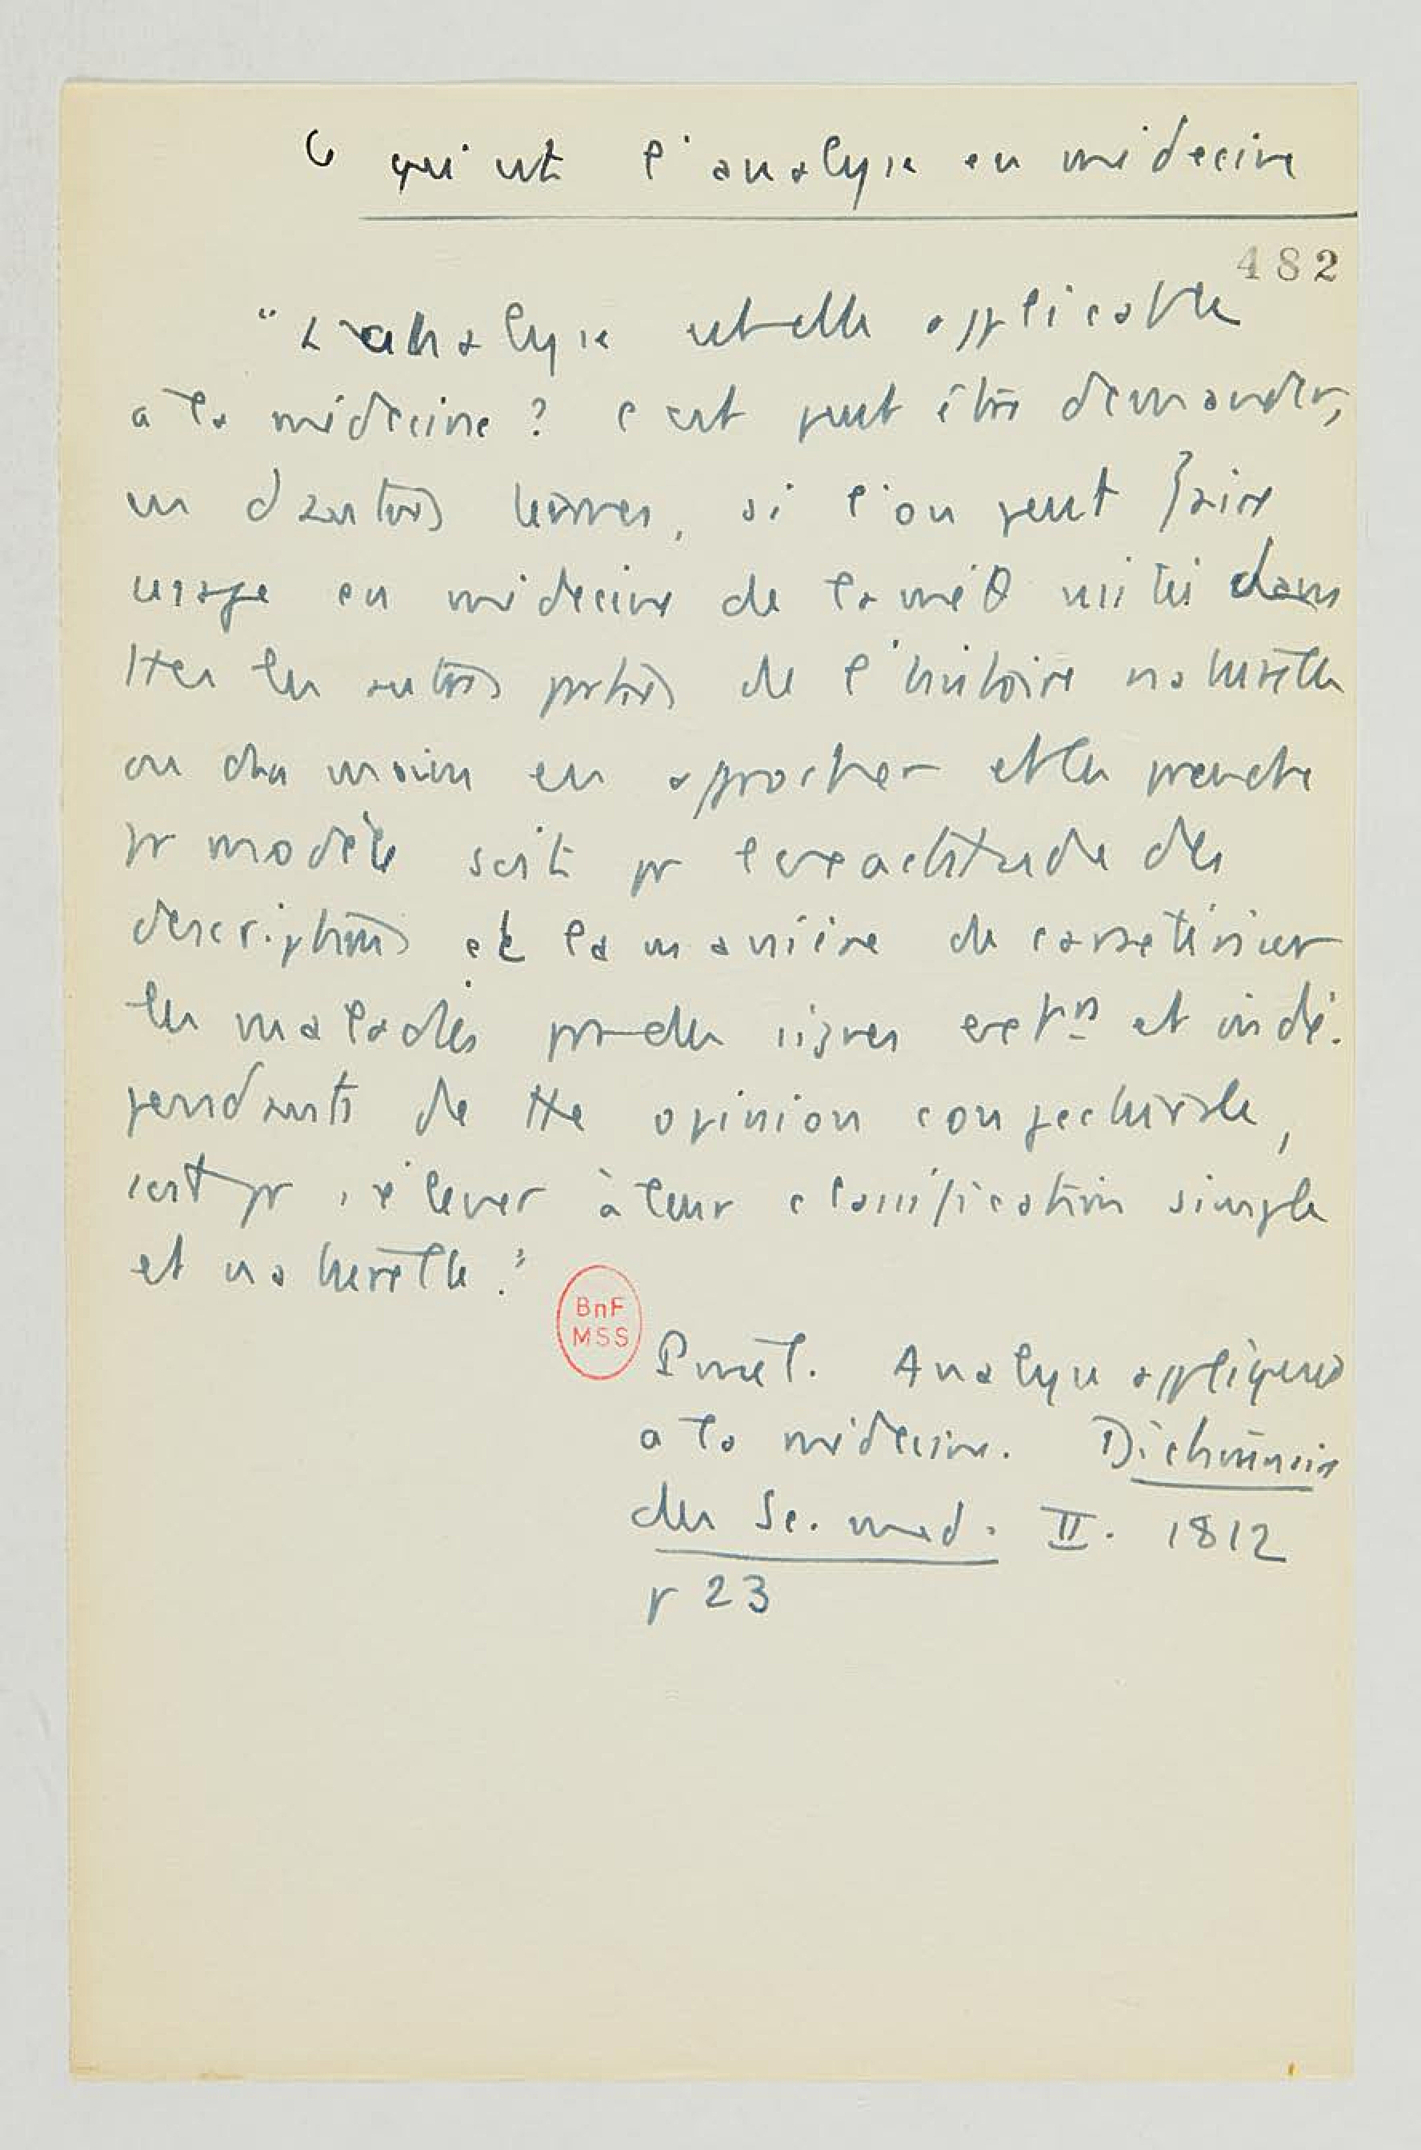 Ce qu'est l'analyse en médecine
482
"L'analyse est-elle applicable
à la médecine ? C'est peut être demander,
en d'autres termes, si l'on peut faire
usage en médecine de la méθ usitée dans
ttes les autres parties de l'histoire naturelle
ou du moins en approcher et les prendre
pr modèle soit pr l'exactitude des
descriptions et la manière de caractériser
les maladies par des signes extrs et indé-
pendants de tte opinion conjecturale,
soit pr s'élever à leur classification simple
et naturelle."
BnF
MSS
Pinel. Analyse appliquée
à la médecine. Dictionnaire
des Sc. med. II. 1812
p 23